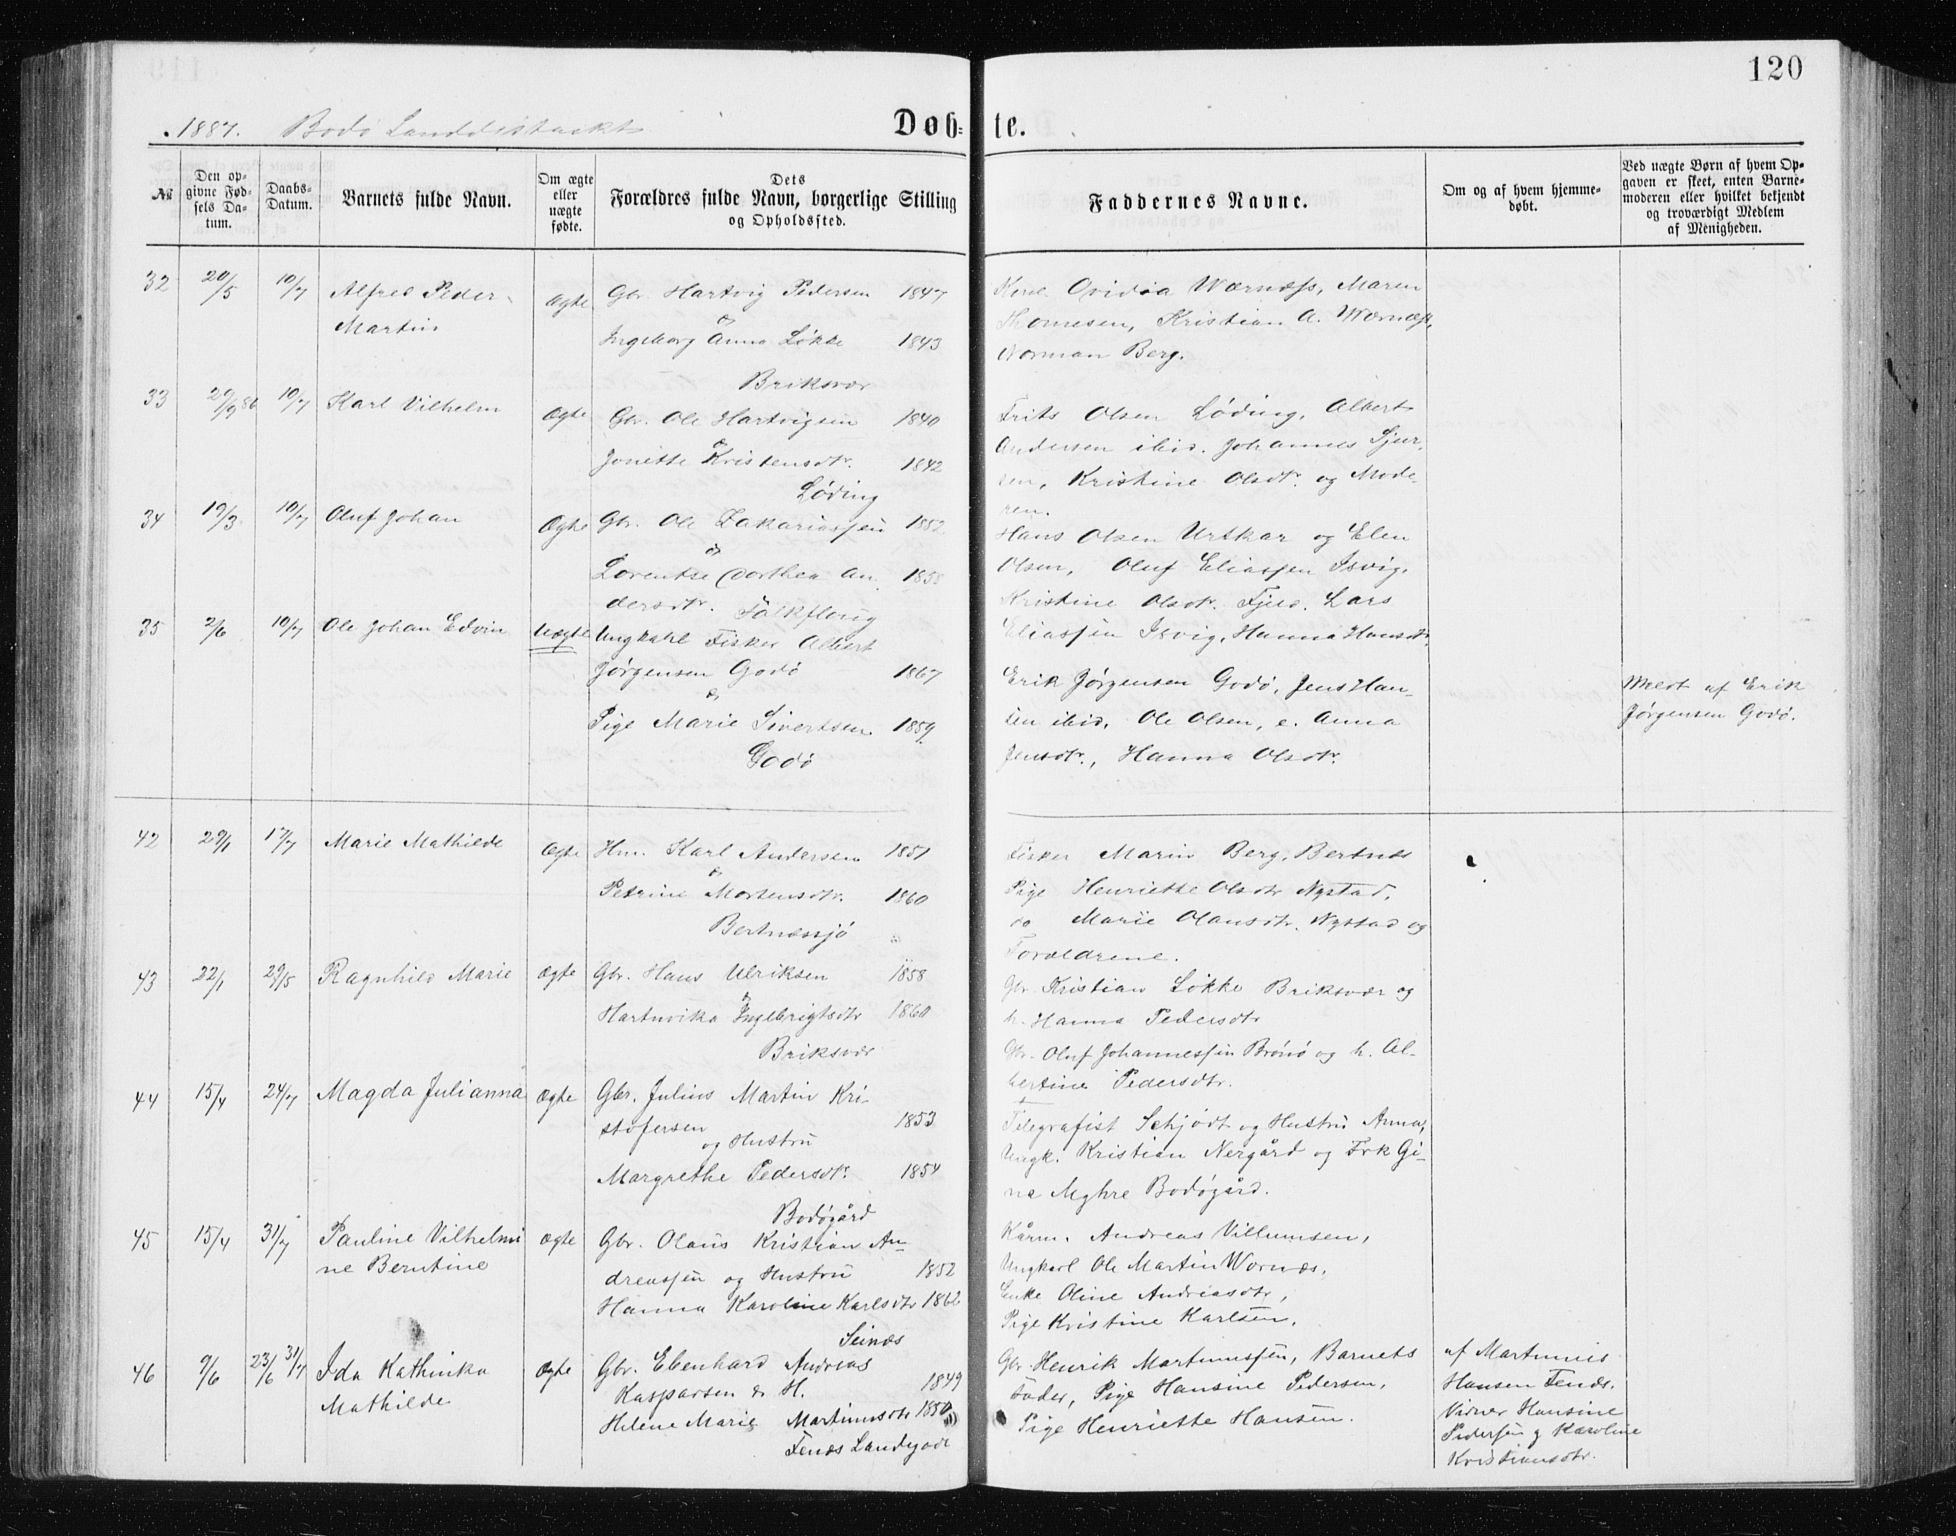 120
1887. Bodø Landdistrikt
Døb- te.
№
Den op-
givne Fød-
sels Da-
tum.
Daabs-
Datum.
Barnets fulde Navn.
Om ægte
eller
uægte
fødte.
Dets
Forældres fulde Navn, borgerlige Stilling
og Opholdssted.
Faddernes Navne.
Om og af hvem hjemme-
døbt.
Ved uægte Børn af hvem Op-
gaven er skeet, enten Barne-
moderen eller hvilket bekjendt
og troværdigt Medlem
af Menigheden.
32 20/5 10/7 Alfred Peder
Martin
Ægte
Gbr. Hartvig Pedersen 1847
&
Ingeborg Anna Løkke 1843
Briksvær
Kone Ovidia Wærnæss, Maren
Thomesen, Kristian A. Wærnæss,
Norman Berg.
33 29/9 86 10/7 Karl Vilhelm
Ægte
Gbr. Ole Hartvigsen 1840
&
Jonette Kristensdtr. 1842
Løding
Frits Olsen Løding, Albert
Andersen ibid. Johannes Sjur-
sen, Kristine Olsdtr. og Mode-
ren.
34 19/3 10/7 Oluf Johan
Ægte
Gbr. Ole Zakariassen 1852
&
Lorentse Dorthea An- 1858
dersdtr. Falkflaug
Hans Olsen Urskar og Elen
Olsen, Oluf Eliassen Isvig,
Kristine Olsdtr. Fjeld. Lars
Eliassen Isvig, Hanna Hansdtr.
35 2/6 10/7 Ole Johan Edvin
Uægte
Ungkarl Fisker Albert
Jørgensen Godø 1867
&
Pige Marie Sivertsen 1859
Godø
Erik Jørgensen Godø, Jens Han-
sen ibid, Ole Olsen, e. Anna
Jensdtr., Hanna Olsdtr.
Meldt af Erik
Jørgensen Godø.
42 29/1 17/7 Marie Mathilde
Ægte
Hm. Karl Andersen 1851
&
Petrine Mortensdtr. 1860
Bertnæssjø
Fisker Marin Berg, Bertnæs
Pige Henriette Olsdtr Nystad,
do Marie Olausdtr. Nystad og
Forældrene.
43 22/1 29/5 Ragnhild Marie
Ægte
Gbr. Hans Ulriksen 1858
&
Hartvika Ingebrigtsdtr 1860
Briksvær
Gbr. Kristian Løkke Briksvær og
h. Hanna Pedersdtr
Gbr. Oluf Johannessen Brönø og h. Al-
bertine Pedersdtr.
44 15/4 24/7 Magda Julianna
Ægte
Gbr. Julius Martin Kri-
stofersen 1853
og Hustru
Margrethe Pedersdtr. 1854
Bodøgård
Telegrafist Schjødt og Hustru Anna,
Ungk. Kristian Nergård og Frk Gi-
na Myhre Bodøgård.
45 15/4 31/7 Pauline Vilhelmi
ne Berntine
Ægte
Gbr. Olaus Kristian An-
dreassen og Hustru 1852
Hanna Karoline Karlsdtr 1862
Seinæs
Kårm. Andreas Villumsen,
Ungkarl Ole Martin Wornæs,
Enke Oline Andreasdtr,
Pige Kristine Karlsen.
46 9/6 23/6 31/7 Ida Kathinka
Mathilde
Ægte
Gbr. Ebenhard Andreas
Kaspersen & H. 1849
Helene Marie Martinusdtr 1850
Fenæs Landegode
Gbr Henrik Martinussen, Barnets
Fader, Pige Hansine Pedersen,
Pige Henriette Hansen.
af Martinus
Hansen Fenæs.
Vidner Hansine
Pedersen & Karoline
Kristiansdtr.